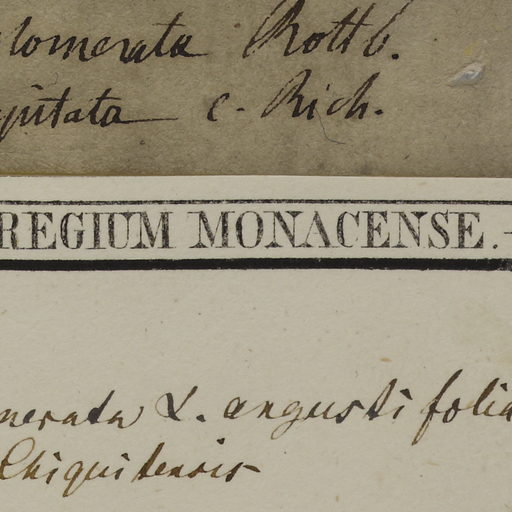 lomerata Rottb.
pitata c. Rich.
REGIUM MONACENSE.
merata L. angustifolia
Chiquitensis